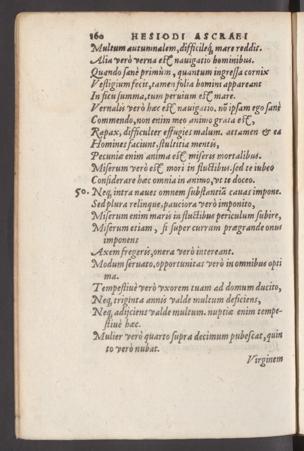 160 HESIODI ASCRAEI
Multum autumnalem, difficileq́; mare reddit.
Alia verò verna est nauigatio hominibus.
Quando sanè primùm, quantum ingressa cornix
Vestigium fecit, tamen folia homini appareant
In ficu summa, tum peruium est mare.
Vernalis verò hæc est nauigatio, nõ ipsam ego sanè
Commendo, non enim meo animo grata est,
Rapax, difficulter effugies malum. attamen & ea
Homines faciunt, stultitia mentis,
Pecuniæ enim anima est miseris mortalibus.
Miserum verò est mori in fluctibus, sed te iubeo
Considerare hæc omnia in animo, vt te doceo.
50. Neq, intra naues omnem substantiã cauas impone.
Sed plura relinque, pauciora verò imponito,
Miserum enim maris in fluctibus periculum subire,
Miserum etiam, si super currum prægrande onus
imponens
Axem fregeris, onera verò intereant.
Modum seruato, opportunitas verò in omnibus opti
ma.
Tempestiuè verò vxorem tuam ad domum ducito,
Neq, triginta annis valde multum deficiens,
Neq, adijciens valde multum. nuptiæ enim tempe-
stiuè hæc.
Mulier verò quarto supra decimum pubescat, quin
to verò nubat.
Virginem